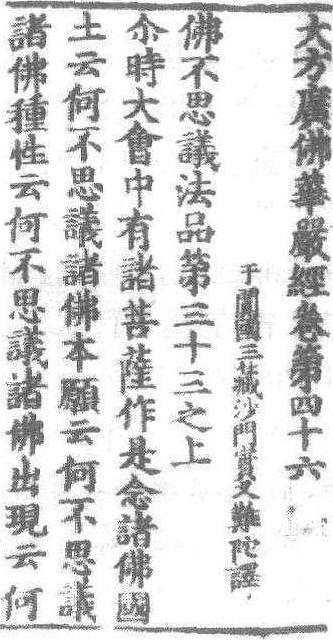 大方廣佛華嚴經卷第四十六
于闐國三藏沙門實叉難陀譯
佛不思議法品第三十三之上
尒時大會中有諸菩薩作是念諸佛國
土云何不思議諸佛本願云何不思議
諸佛種性云何不思議諸佛出現云何